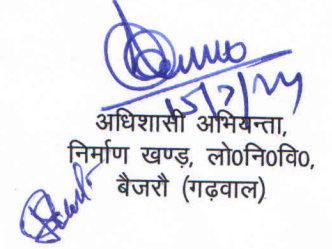 15/7/24
अधिशासी अभियन्ता,
निर्माण खण्ड़, लो0नि0वि0,
बैजरौ (गढ़वाल)